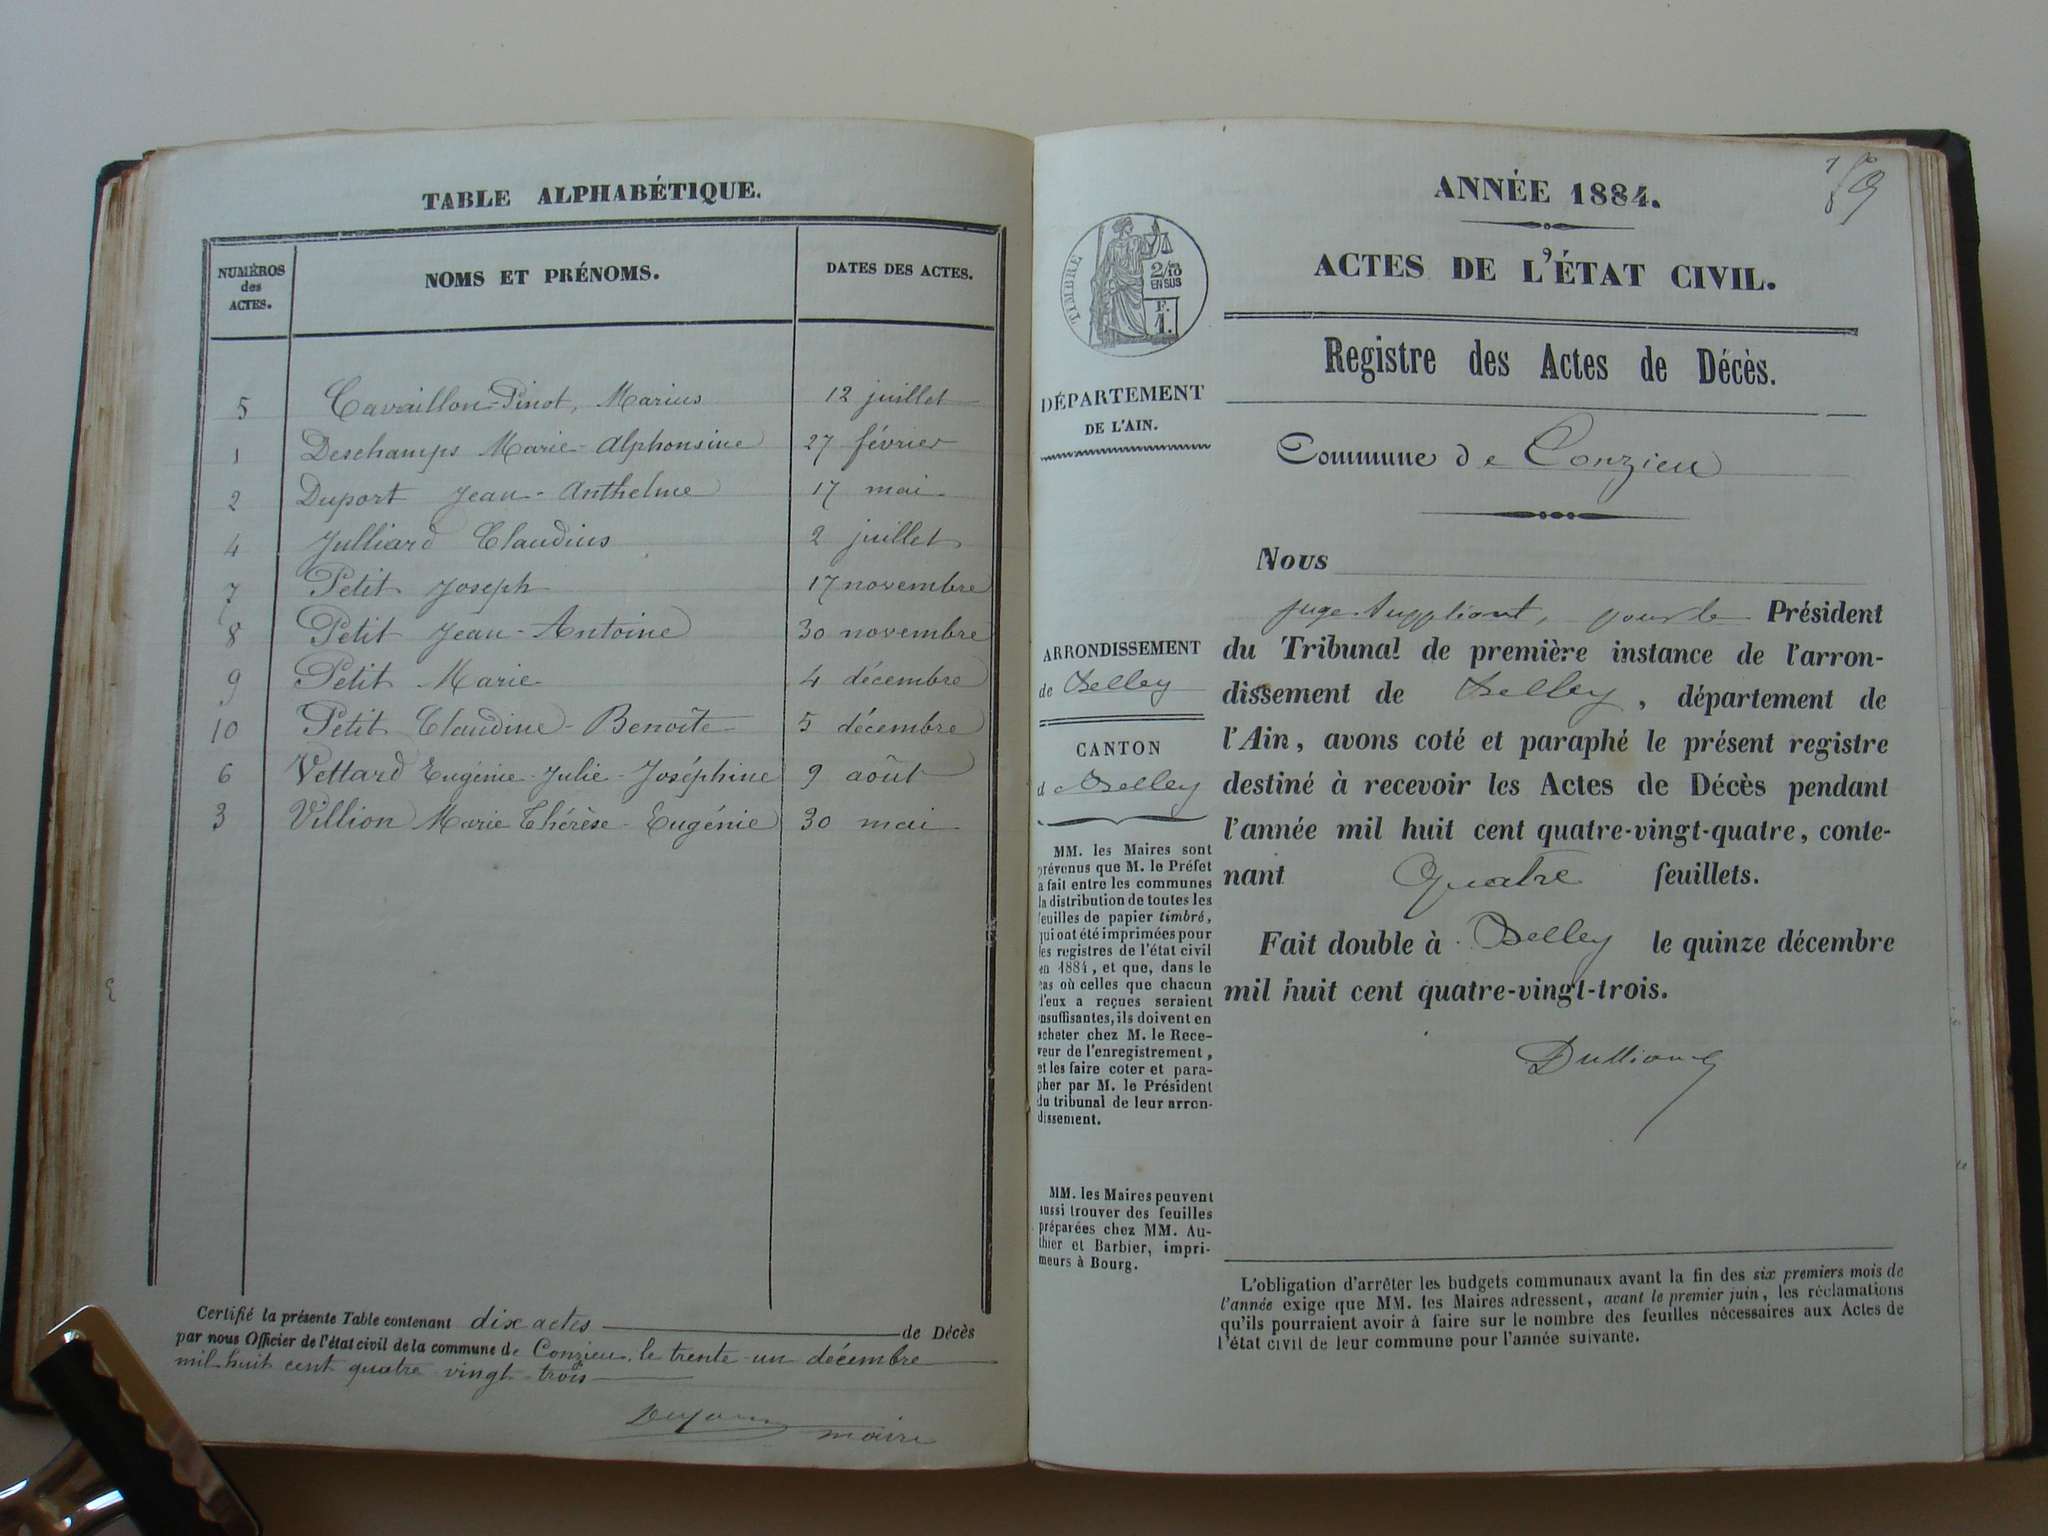 TABLE ALPHABÉTIQUE.
NUMÉROS
des
ACTES.
NOMS ET PRÉNOMS.
DATES DES ACTES.
5 Cavaillon-Pinot, Marius 12 juillet
1 Deschamps Marie-Alphonsine 27 février
2 Duport Jean-Anthelme 17 mai
4 Julliard Claudius 2 juillet
7 Petit Joseph 17 novembre
8 Petit Jean-Antoine 30 novembre
9 Petit Marie 4 décembre
10 Petit Claudine-Benoîte 5 décembre
6 Vettard Eugénie-Julie-Joséphine 9 août
3 Villion Marie Thérèse-Eugénie 30 mai
Certifié la présente Table contenant dix actes de Décès
par nous Officier de l'état civil de la commune de Conzieu, le trente-un décembre
mil huit cent quatre-vingt-trois
maire
ANNÉE 1884.
ACTES DE L'ÉTAT CIVIL.
TIMBRE
2/10
EN SUS
F.
1.
Registre des Actes de Décès.
DÉPARTEMENT
DE L'AIN.
Commune de Conzieu
Nous
juge suppléant, pour le Président
du Tribunal de première instance de l'arron-
dissement de Belley, département de
l'Ain, avons coté et paraphé le présent registre
destiné à recevoir les Actes de Décès pendant
l'année mil huit cent quatre-vingt-quatre, conte-
nant Quatre feuillets.
Fait double à Belley le quinze décembre
mil huit cent quatre-vingt-trois.
ARRONDISSEMENT
de Belley
CANTON
d Belley
MM. les Maires sont
prévenus que M. le Préfet
a fait entre les communes
la distribution de toutes les
feuilles de papier timbré,
qui ont été imprimées pour
les registres de l'état civil
en 1884, et que, dans le
cas où celles que chacun
d'eux a reçues seraient
insuffisantes, ils doivent en
acheter chez M. le Rece-
veur de l'enregistrement,
et les faire coter et para-
pher par M. le Président
du tribunal de leur arron-
dissement.
MM. les Maires peuvent
aussi trouver des feuilles
préparées chez MM. Au-
thier et Barbier, impri-
meurs à Bourg.
L'obligation d'arrêter les budgets communaux avant la fin des six premiers mois de
l'année exige que MM. les Maires adressent, avant le premier juin, les réclamations
qu'ils pourraient avoir à faire sur le nombre des feuilles nécessaires aux Actes de
l'état civil de leur commune pour l'année suivante.